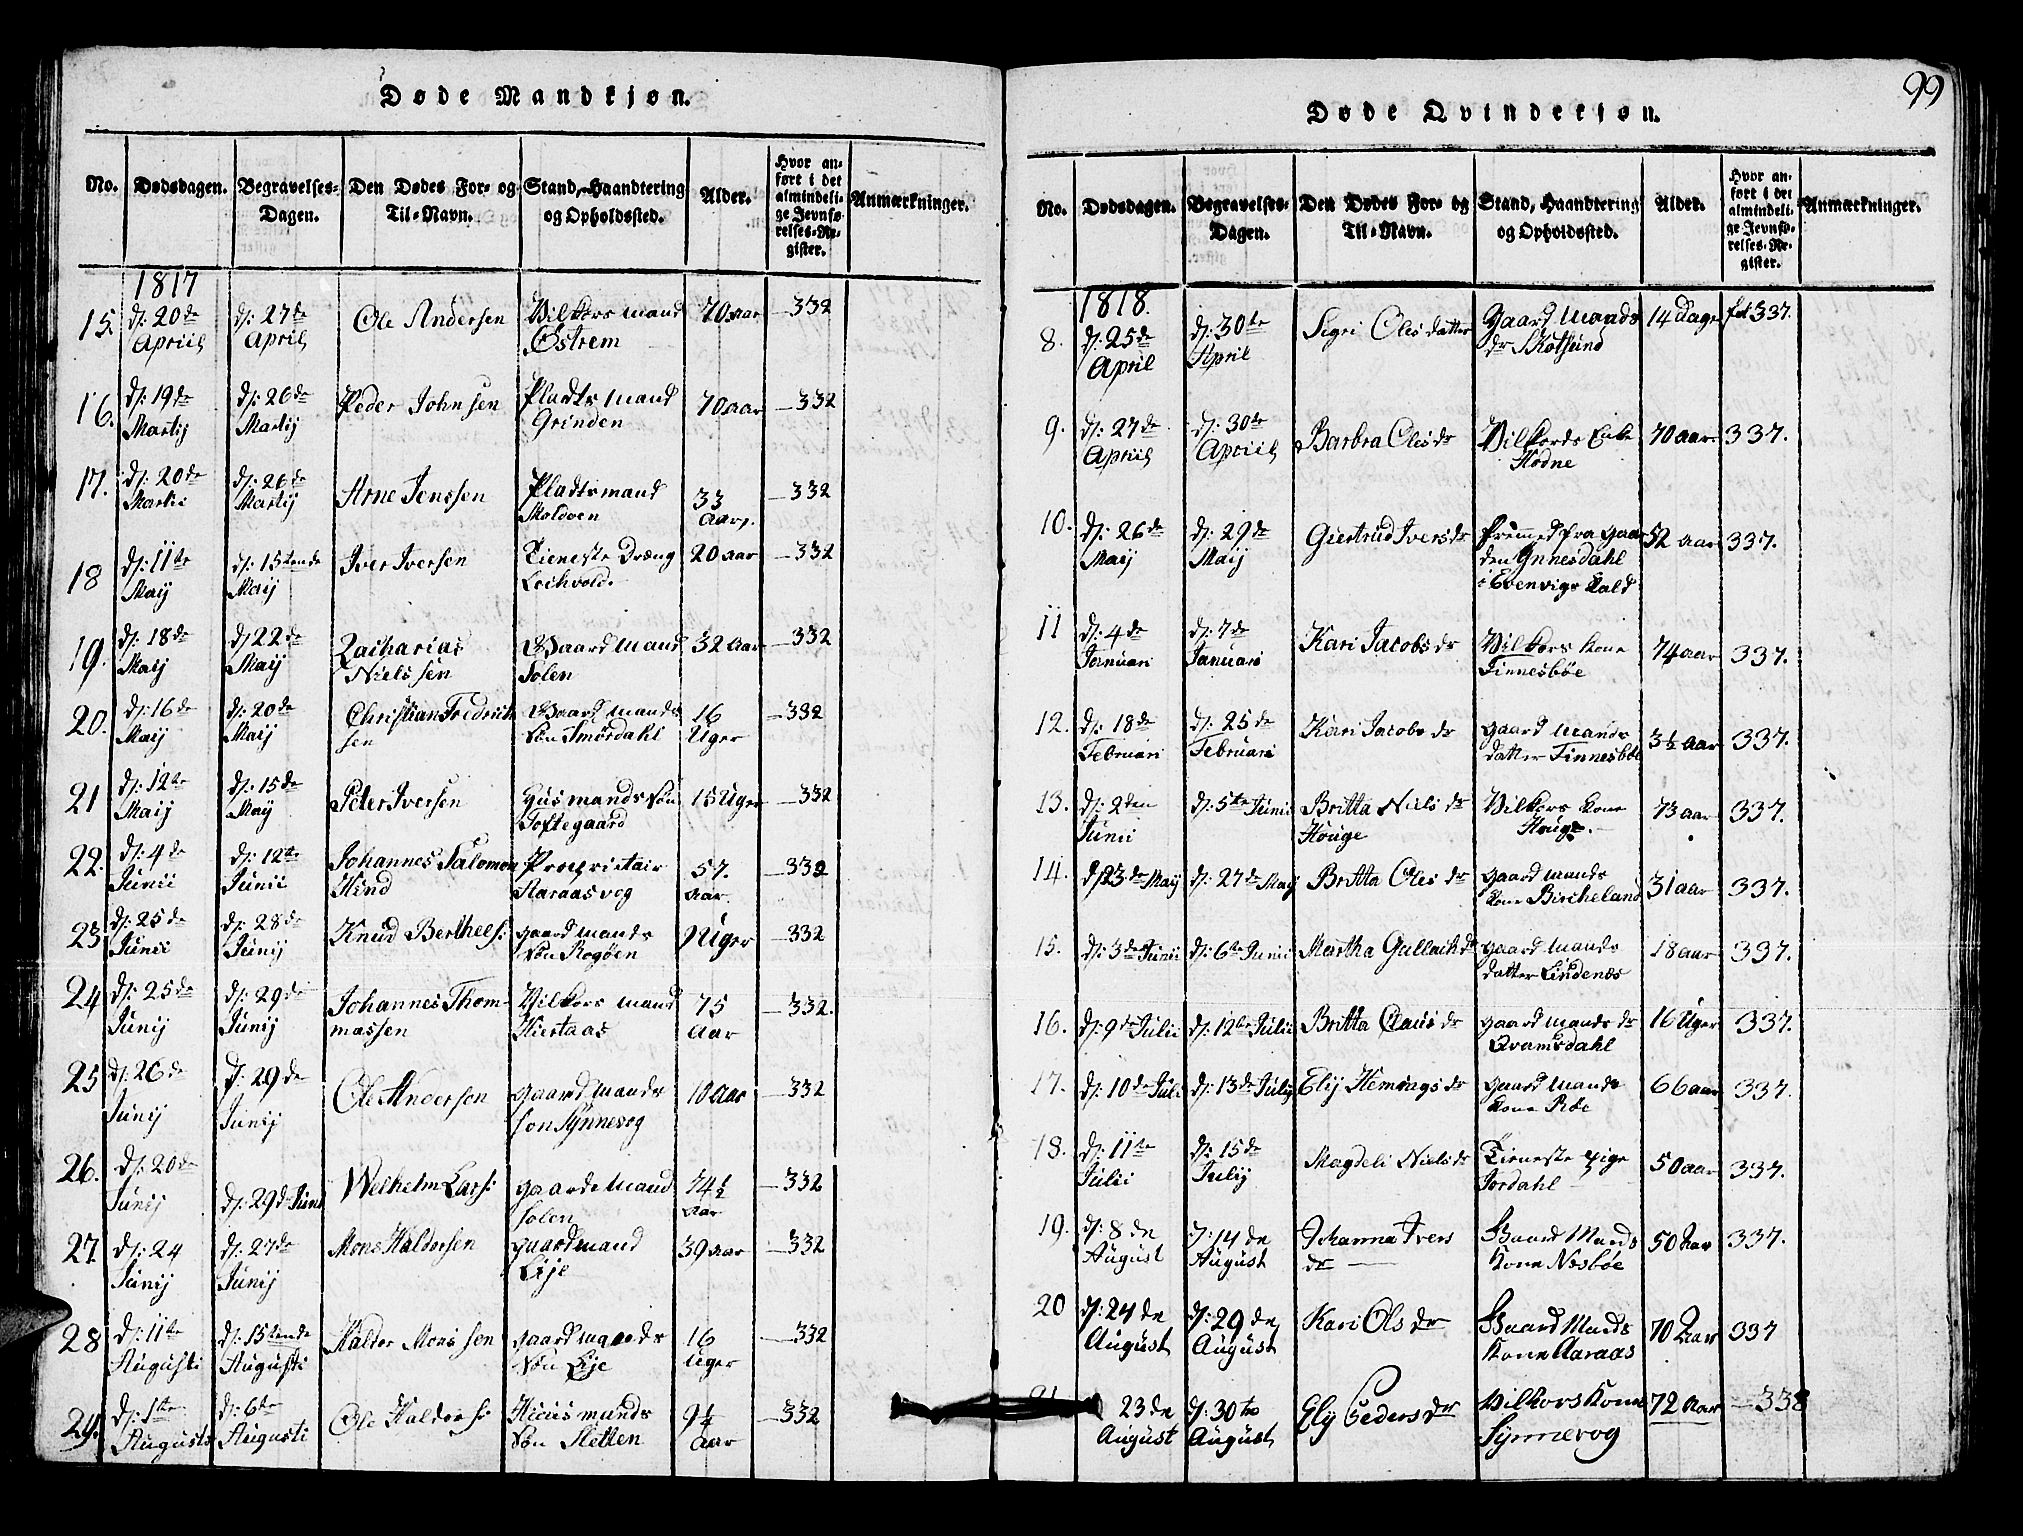 Døde Mandkjøn.
No. Dødsdagen. Begravelses-Dagen. Den Dødes For- og Til-Navn. Stand, Haandtering og Opholdssted. Alder. Hvor anført i det almindelige Jevnførelses-Register. Anmærkninger.
1817
15. d: 20de Apriil d: 27de April Ole Andersen Vilkors mand Østrem 70 aar 332
16. d: 19de Martij d: 26de Martij Peder Johnsen Pladts mand Grinden 70 aar 332
17. d: 20de Martii d: 26de Martij Arne Jenssen Pladtsmand Moldoen 33 aar 332
18 d: 11te Maij d: 15tende Maij Iver Iversen Tieneste Dræng Leihvold 20 aar 332
19. d: 18de Maij d 22de Maij Zacharias Nielssen Gaard mand Solen 32 aar 332
20. d: 16de Maij d: 20de Maij Christian Fredrichsen Gaard mands Søn Smørdahl 16 Uger 332
21 d: 12te Maij d: 15de Maij Peter Iversen Huusmands Søn Toftegaard 15 Uger 332
22. d: 4de Junii d: 12te Junii Johannes Salomon Hind Proprietair Aaraasvog 57. aar. 332
23 d: 25de Junii d: 28de Junij Knud Berthels: gaard mands Søn Rogøen 9 Uger 332
24 d: 25de Junij d: 29de Junij Johannes Thommassen Vilkors mand Hiertaas 75 aar 332.
25 d: 26de Junij d: 29de Junij Ole Andersen gaard mands søn Synnevog 10 aar 332
26. d: 20de Junij d: 29d Junii Welhelm Lars: gaards mand Solen 74½ aar 332
27 d: 24 Junij d: 27de Junij Mons Haldorsen gaardmand Lije 39 aar 332
28 d: 11te Augusti d: 15tende Augusti Haldor Monssen gaard mands Søn Lije 16 Uger 332
29. d: 1ste Augusti d: 6de Augusti Ole Haldors: Huus mands Søn Sletten 9¼ aar 332
99
Døde Qvindekjøn.
No. Dødsdagen. Begravelses-Dagen. Den Dødes For- og Til-Navn. Stand, Haandtering og Opholdssted. Alder. Hvor anført i det almindelige Jevnførelses-Register. Anmærkninger.
1818.
8. d: 25de April d: 30te April Sigri Olesdatter Gaard Mands dr Skotsund 14 dage fol 337.
9. d: 27de Apriil d: 30te Apriil Barbra Olesdr Vilkords Enke Hodne 70 aar 337.
10. d: 26de Maij d: 29de Maij Giertrud Iversdr fremmed fra gaarden Ynnesdahl i Evenvigs Kald 52 aar 337.
11 d: 4de Januari d: 7de Januari Kari Jacobsdr Vilkors Kone Finnesbøe 74 aar 337.
12. d: 18de Februari d: 25de Februari Kari Jacobsdr gaard mands datter Finnesbøe 3½ aar 337.
13. d: 2den Junii d: 5te Junii Britta Nielsdr Houge Vilkors Kone Houge 73 aar 337.
14. d 23de Maij d: 27de Maij Britta Olesdr gaard mands Kone Bircheland 31 aar 337.
15. d: 3de Junii d: 6te Junii Martha Gullachdr gaard mands datter Lindenæs 18 aar 337.
16. d: 9de Julii d: 12te Julii Britta Clausdr gaard mands dr Qvamsdahl 16 Uger 337.
17. d: 10de Juli d: 13de Julij Elij Hemingsdr gaard mands Kone Riße 66 aar 337.
18. d: 11te Julii d: 15de Julij Magdeli Nielsdr Tieneste pige Jordahl 50 aar 337.
19. d: 8de August d: 14de August Johanna Ivers dr Gaard Mands Kone Næsbøe 50 Aar 337.
20 d: 24de August d: 29de August Kari Olsdr Gaard Mands Kone Aaraas 70 Aar 337
21 23de August d: 30te August Ely Pedersdr Vilkors Kone Synnevog 72 Aar 338